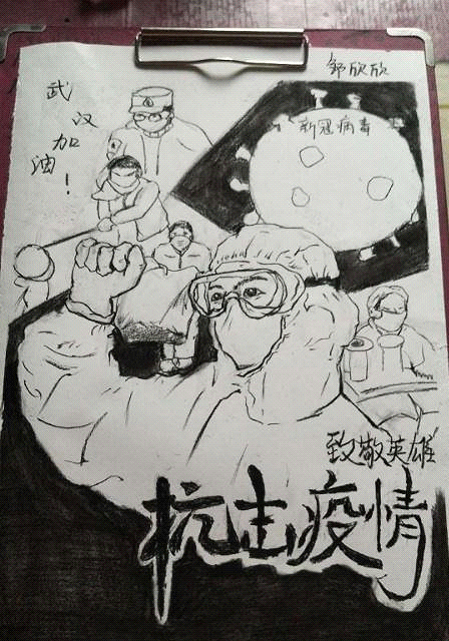 邹欣欣
武汉加油!
新冠病毒
致敬英雄
抗击疫情